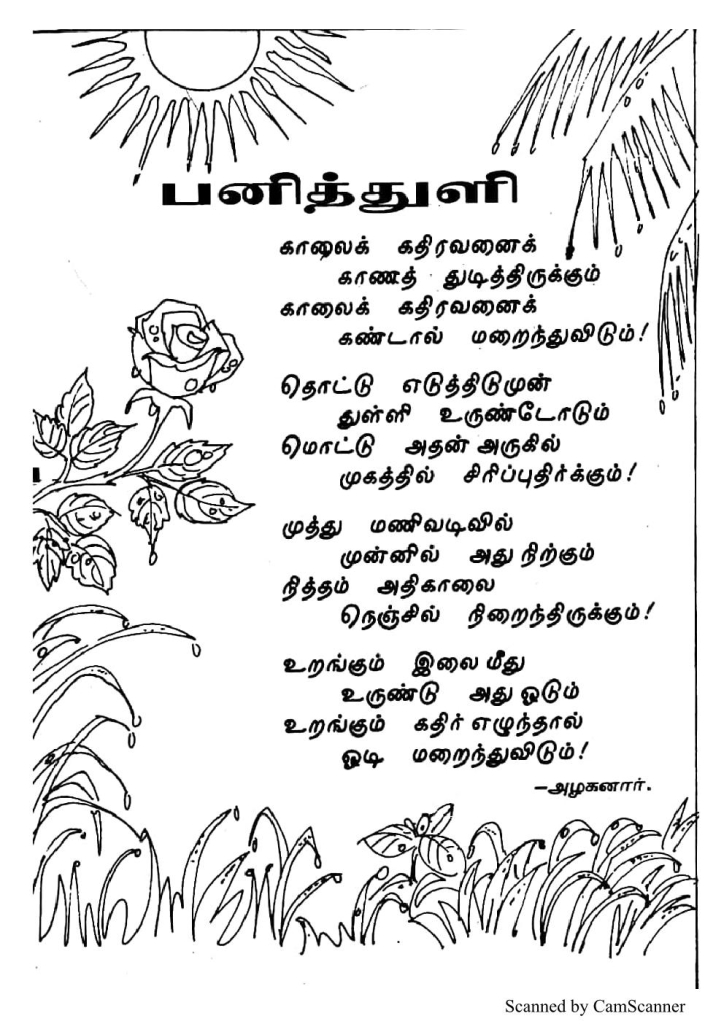 பனித்துளி
காலைக் கதிரவனைக்
காணத் துடித்திருக்கும்
காலைக் கதிரவனைக்
கண்டால் மறைந்துவிடும்!
தொட்டு எடுத்திடுமுன்
துள்ளி உருண்டோடும்
மொட்டு அதன் அருகில்
முகத்தில் சிரிப்புதிர்க்கும்!
முத்து மணிவடிவில்
முன்னில் அது நிற்கும்
நித்தம் அதிகாலை
நெஞ்சில் நிறைந்திருக்கும்!
உறங்கும் இலை மீது
உருண்டு அது ஓடும்
உறங்கும் கதிர் எழுந்தால்
ஓடி மறைந்துவிடும்!
–அழகனார்.
Scanned by CamScanner